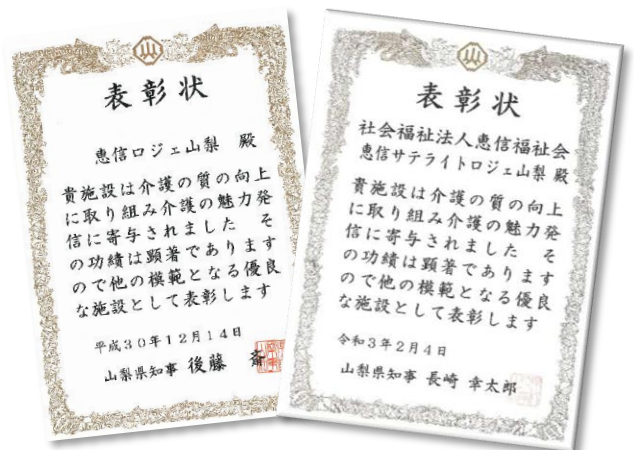 表彰状
恵信ロジェ山梨 殿
貴施設は介護の質の向上
に取り組み介護の魅力発
信に寄与されました そ
の功績は顕著であります
ので他の模範となる優良
な施設として表彰します
平成30年12月14日
山梨県知事 後藤 斎
表彰状
社会福祉法人恵信福祉会
恵信サテライトロジェ山梨 殿
貴施設は介護の質の向上
に取り組み介護の魅力発
信に寄与されました そ
の功績は顕著であります
ので他の模範となる優良
な施設として表彰します
令和3年2月4日
山梨県知事 長崎 幸太郎